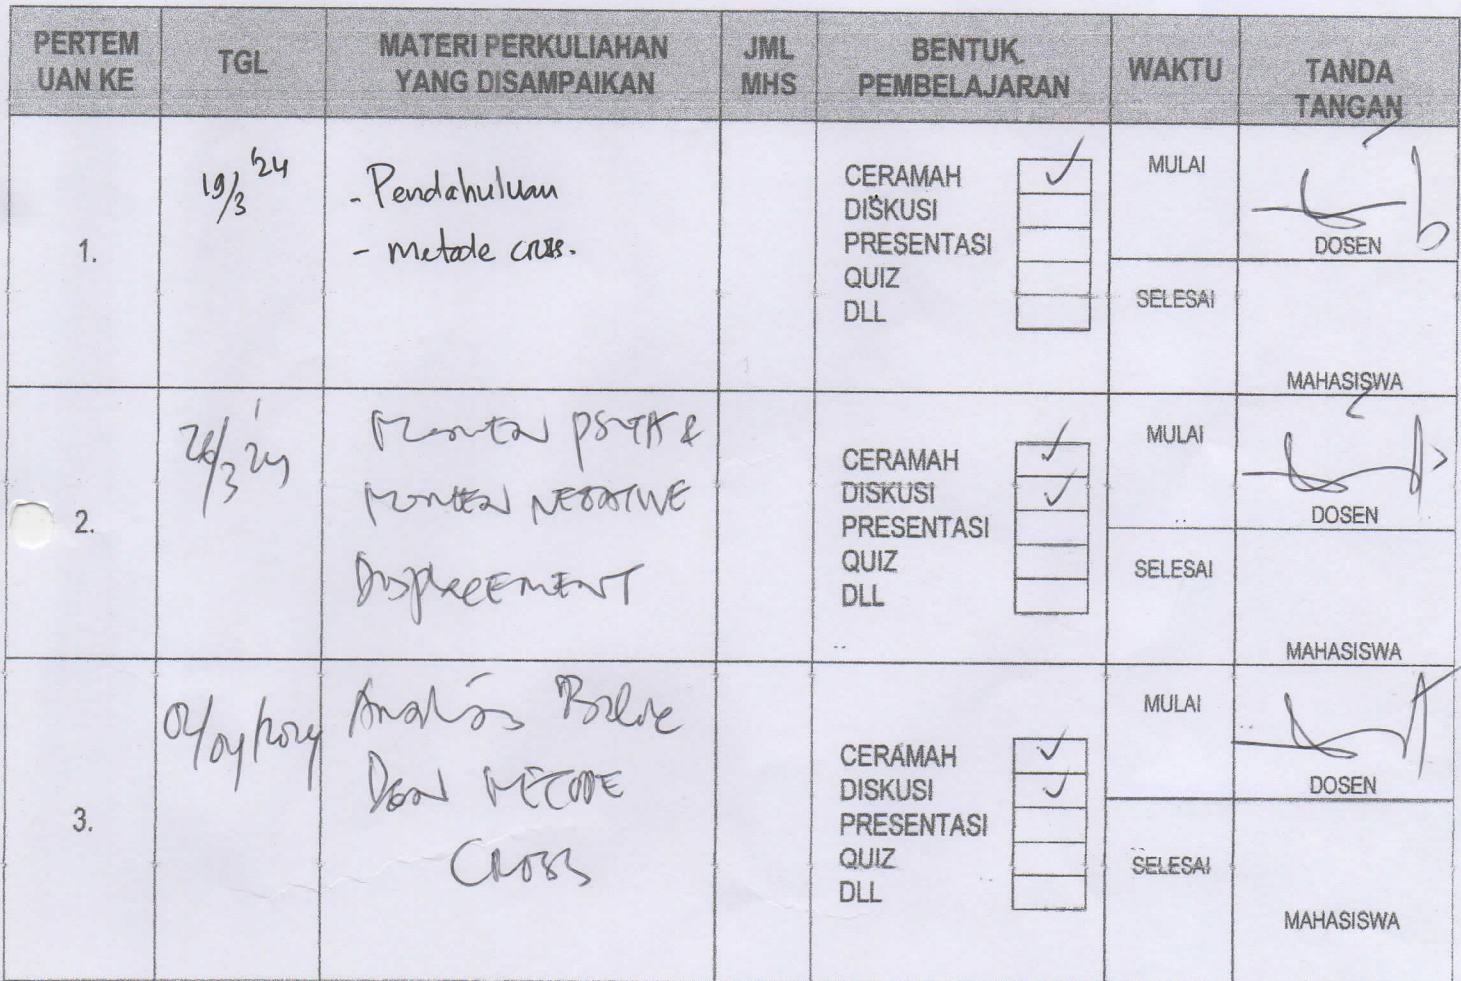 PERTEM
UAN KE
TGL
MATERI PERKULIAHAN
YANG DISAMPAIKAN
JML
MHS
BENTUK
PEMBELAJARAN
WAKTU
TANDA
TANGAN
1.
19/3 '24
- Pendahuluan
- Metode cross.
CERAMAH ✓
DISKUSI
PRESENTASI
QUIZ
DLL
MULAI
SELESAI
DOSEN
MAHASISWA
2.
26/3 '24
MOMEN
MOMEN NEGATIVE
DISPLACEMENT
CERAMAH ✓
DISKUSI ✓
PRESENTASI
QUIZ
DLL
MULAI
SELESAI
DOSEN
MAHASISWA
3.
02/04/2024
Analisis
METODE
CROSS
CERAMAH ✓
DISKUSI ✓
PRESENTASI
QUIZ
DLL
MULAI
SELESAI
DOSEN
MAHASISWA